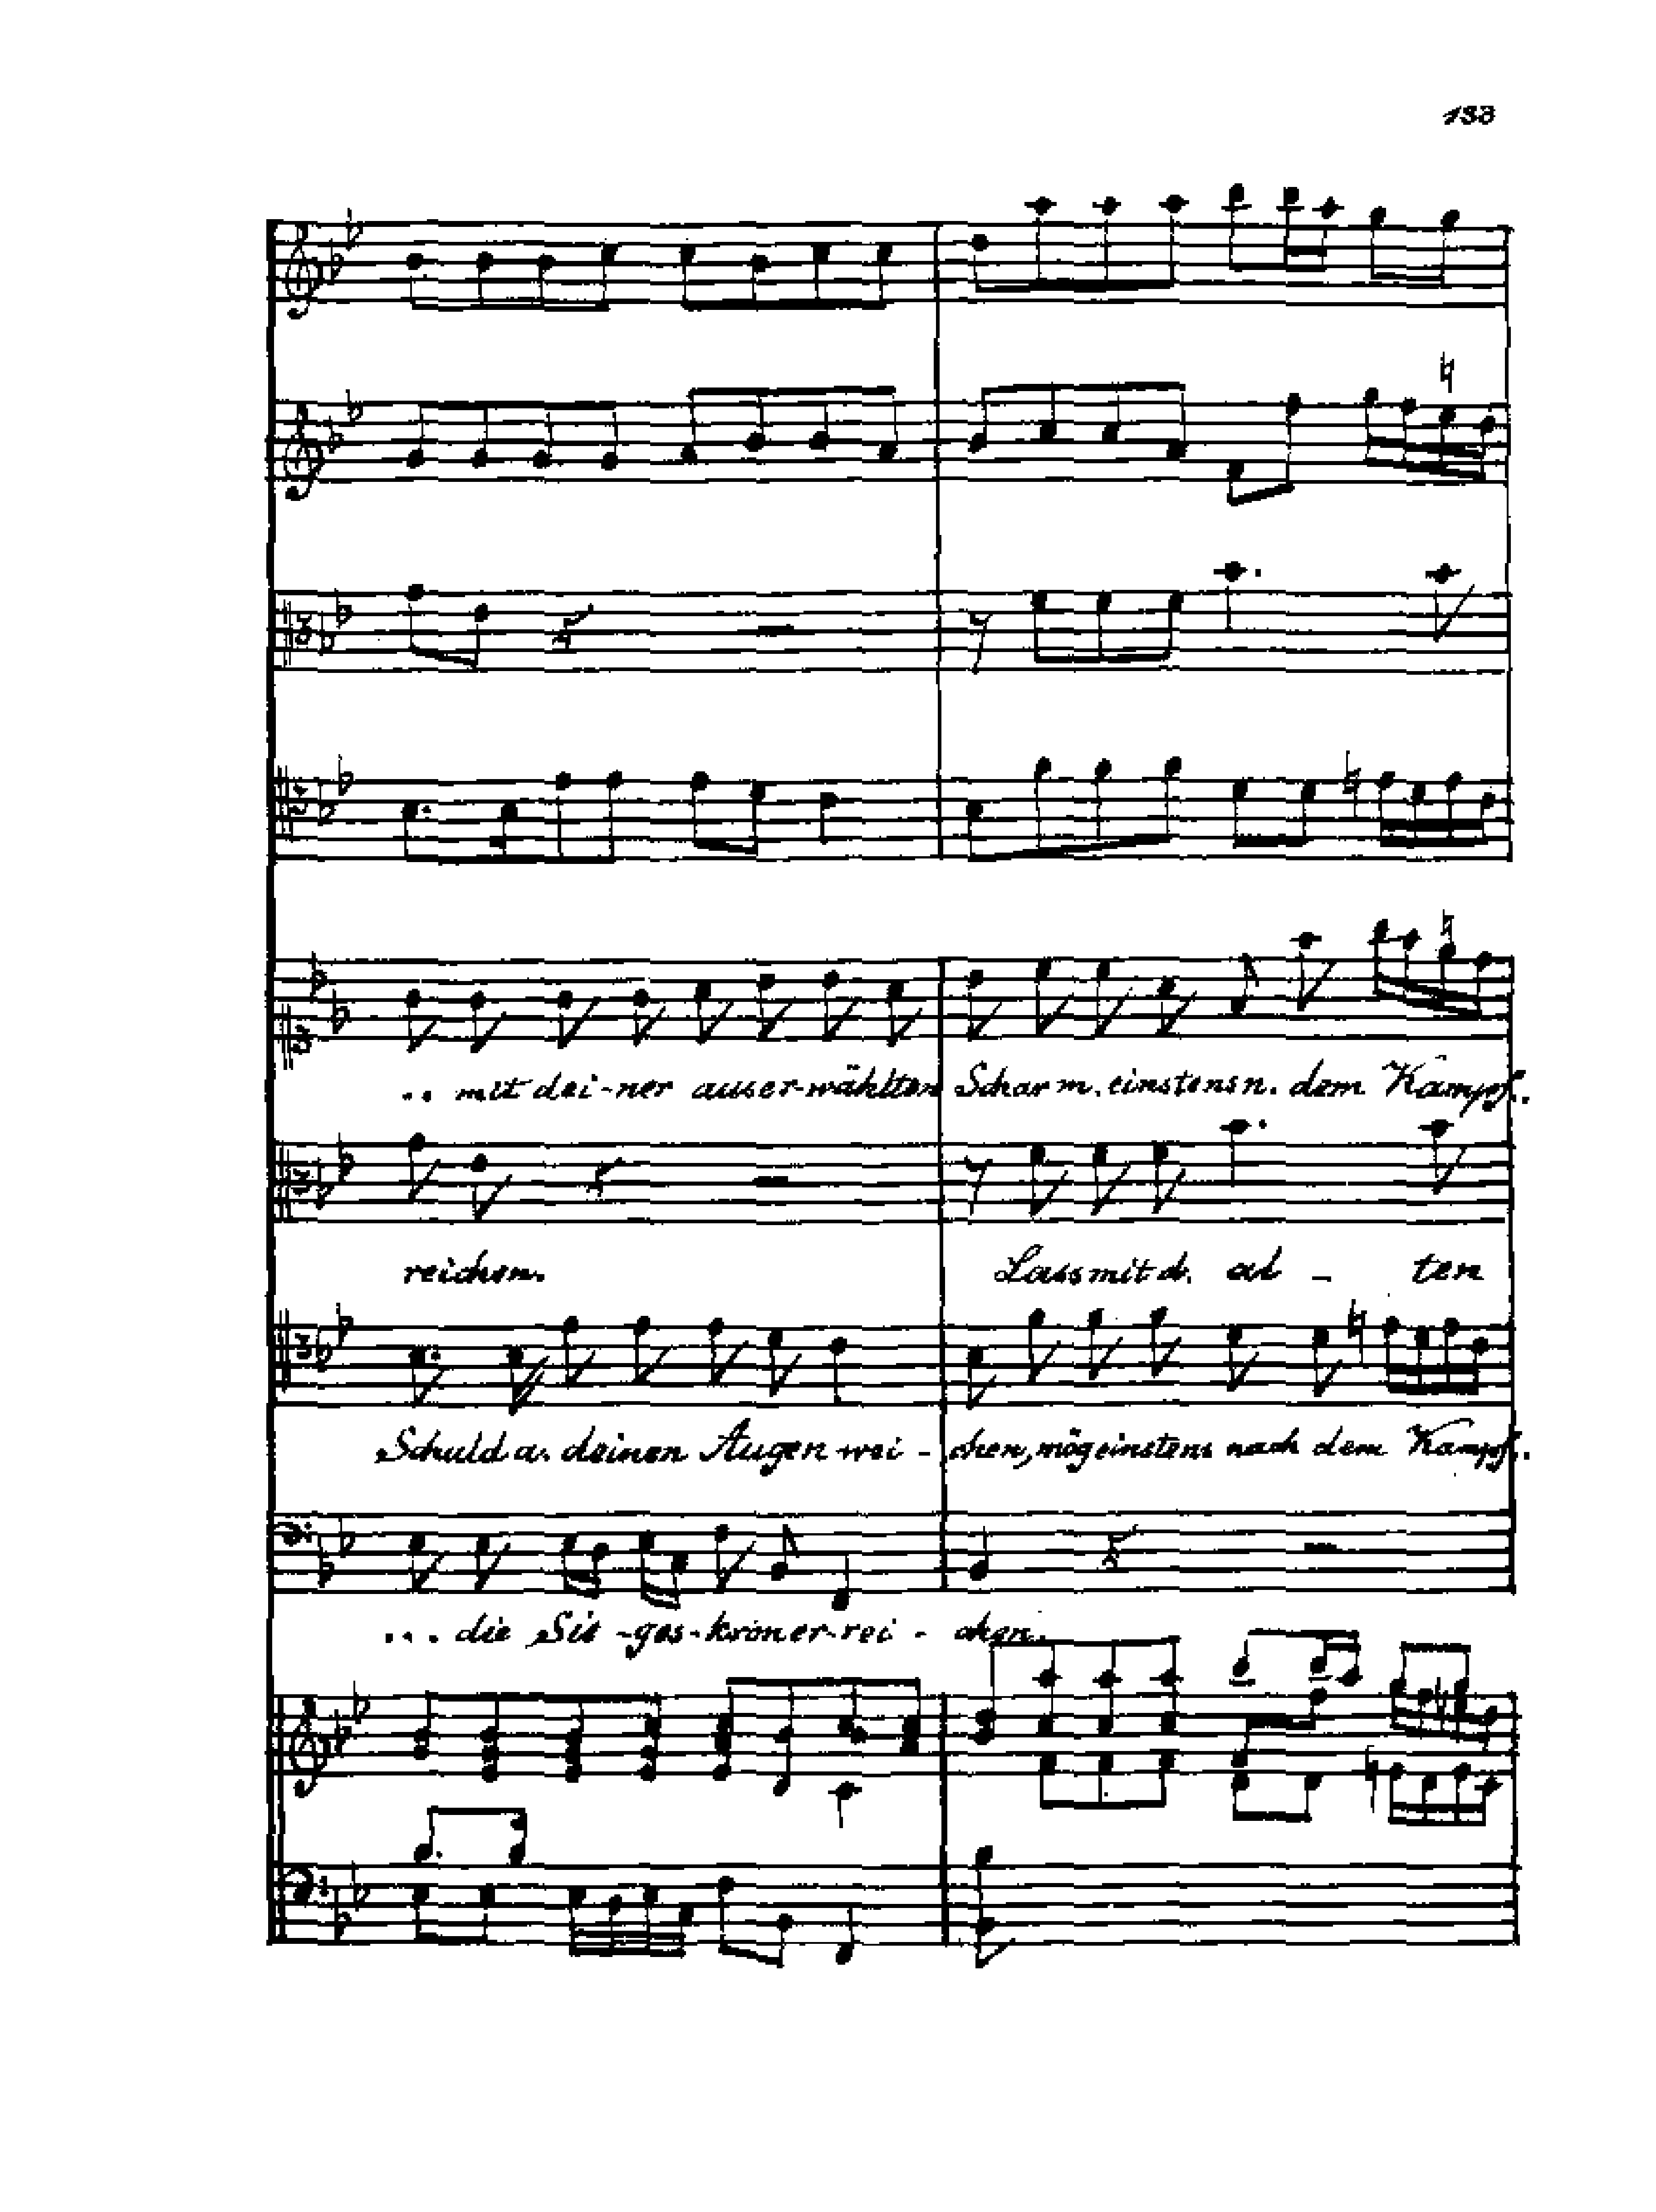 133
.. mit dei-ner auser-wählten Schar m. einstens n. dem Kampf..
reichen. Lass mit d. al - ten
Schuld a. deinen Augen wei - chen, mög einstens nach dem Kampf..
... die Sie -ges-kron er-rei - chen.